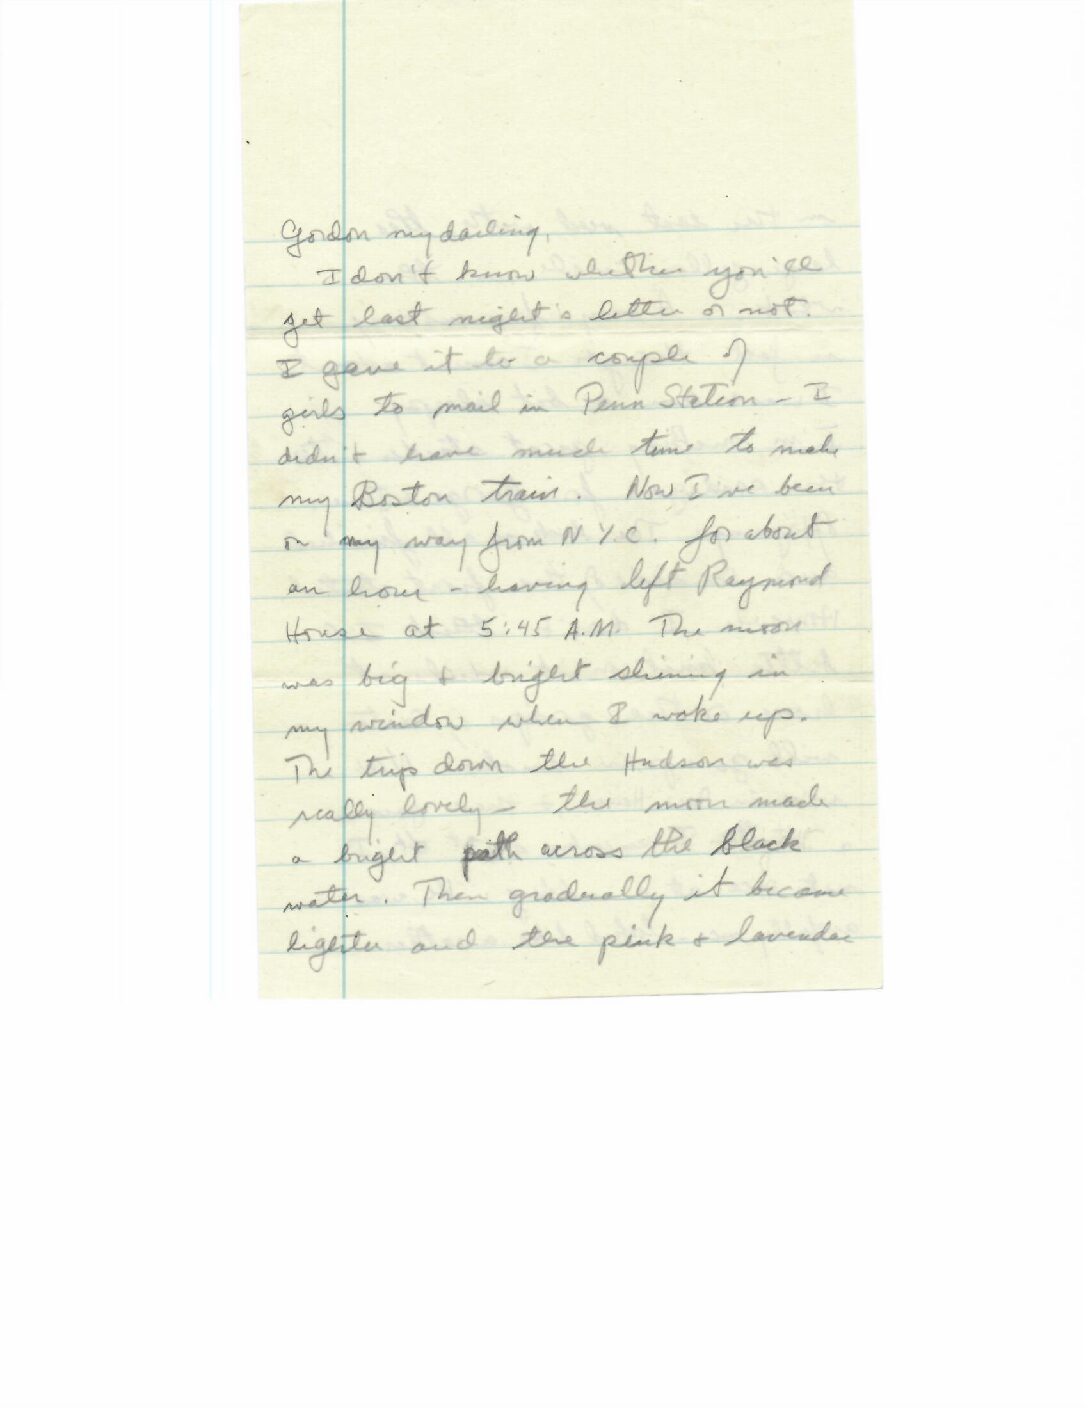 Gordon my darling,
I don't know whether you'll
get last night's letter or not.
I gave it to a couple of
girls to mail in Penn Station - I
didn't have much time to make
my Boston train. Now I've been
on my way from N.Y.C. for about
an hour - having left Raymond
House at 5:45 A.M. The moon
was big & bright shining in
my window when I woke up.
The trip down the Hudson was
really lovely - the moon made
a bright path across the black
water. Then gradually it became
lighter and the pink & lavender